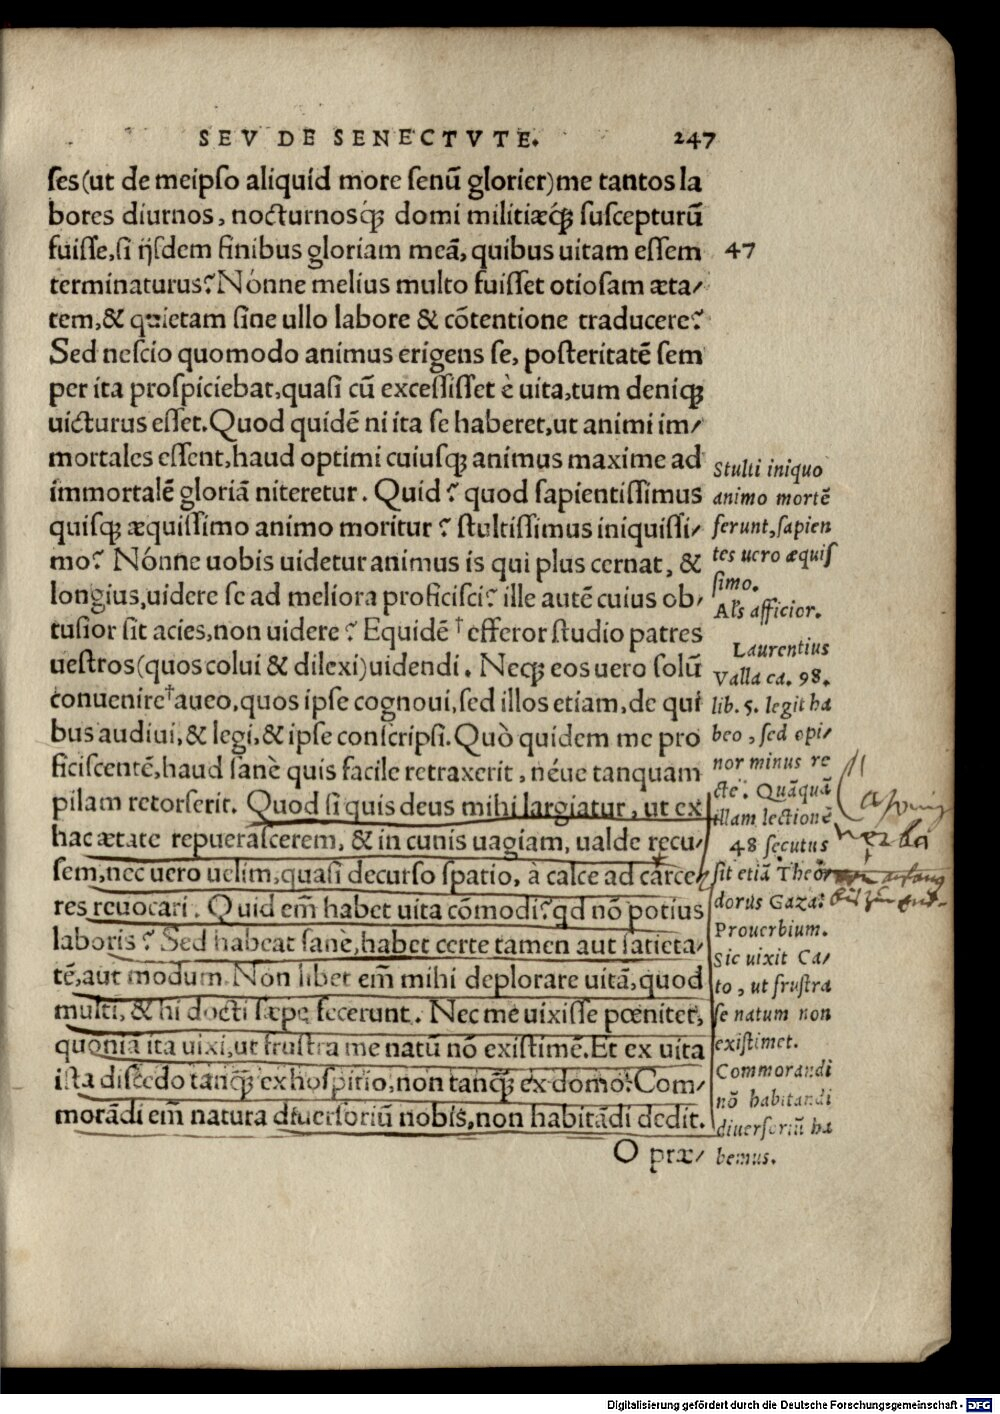 SEV DE SENECTVTE. 247
ſes(ut de meipſo aliquid more ſenū glorier)me tantos la
bores diurnos, nocturnosq́ꝫ domi militiæq́ꝫ ſuſcepturū
fuiſſe,ſi ijſdem finibus gloriam meā, quibus uitam eſſem
47
terminaturus? Nónne melius multo fuiſſet otioſam æta/
tem,& quietam ſine ullo labore & cōtentione traducere?
Sed neſcio quomodo animus erigens ſe, poſteritatē ſem
per ita proſpiciebat,quaſi cū exceſſiſſet è uita,tum deniqꝫ
uicturus eſſet. Quod quidē ni ita ſe haberet,ut animi im/
mortales eſſent,haud optimi cuiuſqꝫ animus maxime ad
immortalē gloriā niteretur. Quid? quod ſapientiſſimus
quiſqꝫ æquiſſimo animo moritur? ſtultiſſimus iniquiſſi/
mo? Nónne uobis uidetur animus is qui plus cernat, &
longius,uidere ſe ad meliora proficiſci? ille autē cuius ob/
tuſior ſit acies,non uidere? Equidē † efferor ſtudio patres
ueſtros(quos colui & dilexi)uidendi. Neqꝫ eos uero ſolū
conuenire†aueo,quos ipſe cognoui,ſed illos etiam,de qui
bus audiui,& legi,& ipſe conſcripſi. Quò quidem me pro
ficiſcentē,haud ſanè quis facile retraxerit, néue tanquam
pilam retorſerit. Quod ſi quis deus mihi largiatur, ut ex
hac ætate repueraſcerem, & in cunis uagiam, ualde recu/
ſem,nec uero uelim,quaſi decurſo ſpatio, à calce ad carce/
res reuocari. Quid em̄ habet uita cōmodi? qd nō potius
laboris? Sed habeat ſanè,habet certe tamen aut ſatieta/
tē,aut modum. Non libet em̄ mihi deplorare uitā,quod
multi, & hi docti ſæpe fecerunt. Nec me uixiſſe pœnitet,
quoniā ita uixi,ut fruſtra me natū nō exiſtimē. Et ex uita
iſta diſcedo tanqꝫ̄ ex hoſpitio,non tanqꝫ̄ ex domo: Com/
morādi em̄ natura diuerſoriū nobis,non habitādi dedit.
O præ/
Stulti iniquo
animo mortē
ferunt,ſapien
tes uero æquiſ
ſimo.
Al's afficior.
Laurentius
Valla ca. 98.
lib. 5. legit ha
beo, ſed opi/
nor minus re
cte. Quāquā
illam lectionē
48 ſecutus
ſit etiā Theo
dorus Gaza:
Prouerbium.
Sic uixit Ca/
to, ut fruſtra
ſe natum non
exiſtimet.
Commorandi
nō habitandi
diuerſoriū ha
bemus.
Digitalisierung gefördert durch die Deutsche Forschungsgemeinschaft - DFG